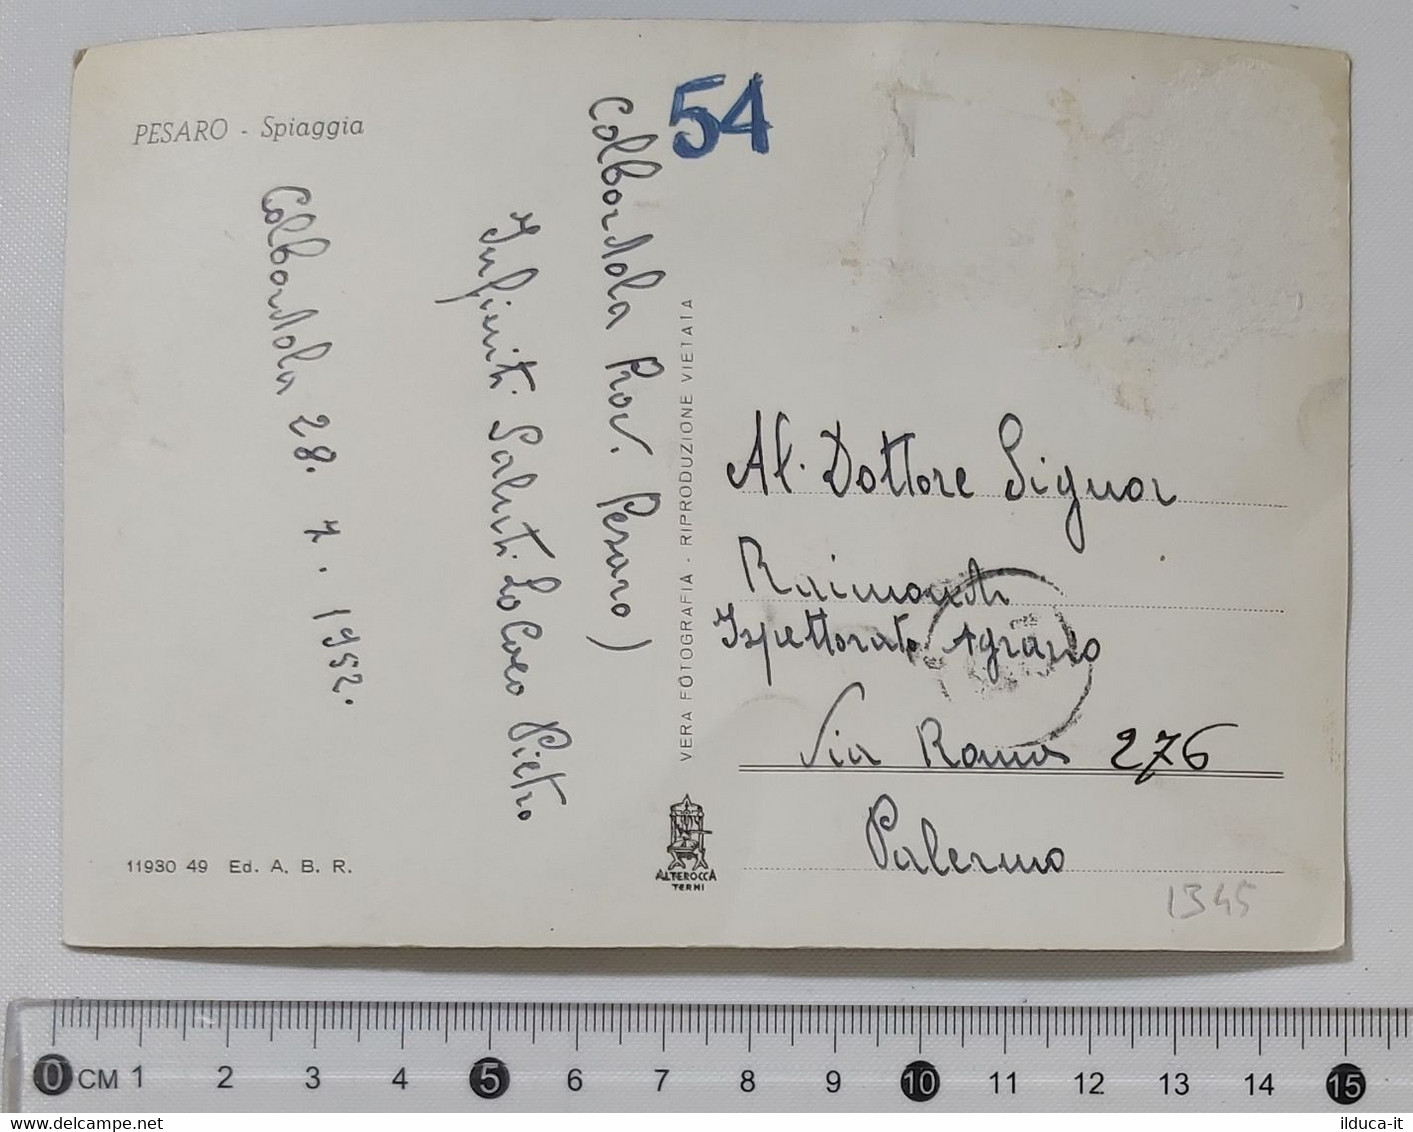 PESARO - Spiaggia
54
Colbordola Prov. Pesaro)
Infiniti Saluti Lo Coco Pietro
Colbordola 28. 7. 1952.
VERA FOTOGRAFIA - RIPRODUZIONE VIETATA
Al. Dottore Signor
Raimondi
Ispettorato Agrario
Via Roma 276
Palermo
ALTEROCCA
TERNI
11930 49 Ed. A. B. R.
1345
0 CM 1 2 3 4 5 6 7 8 9 10 11 12 13 14 15
www.delcampe.net
ilduca-it